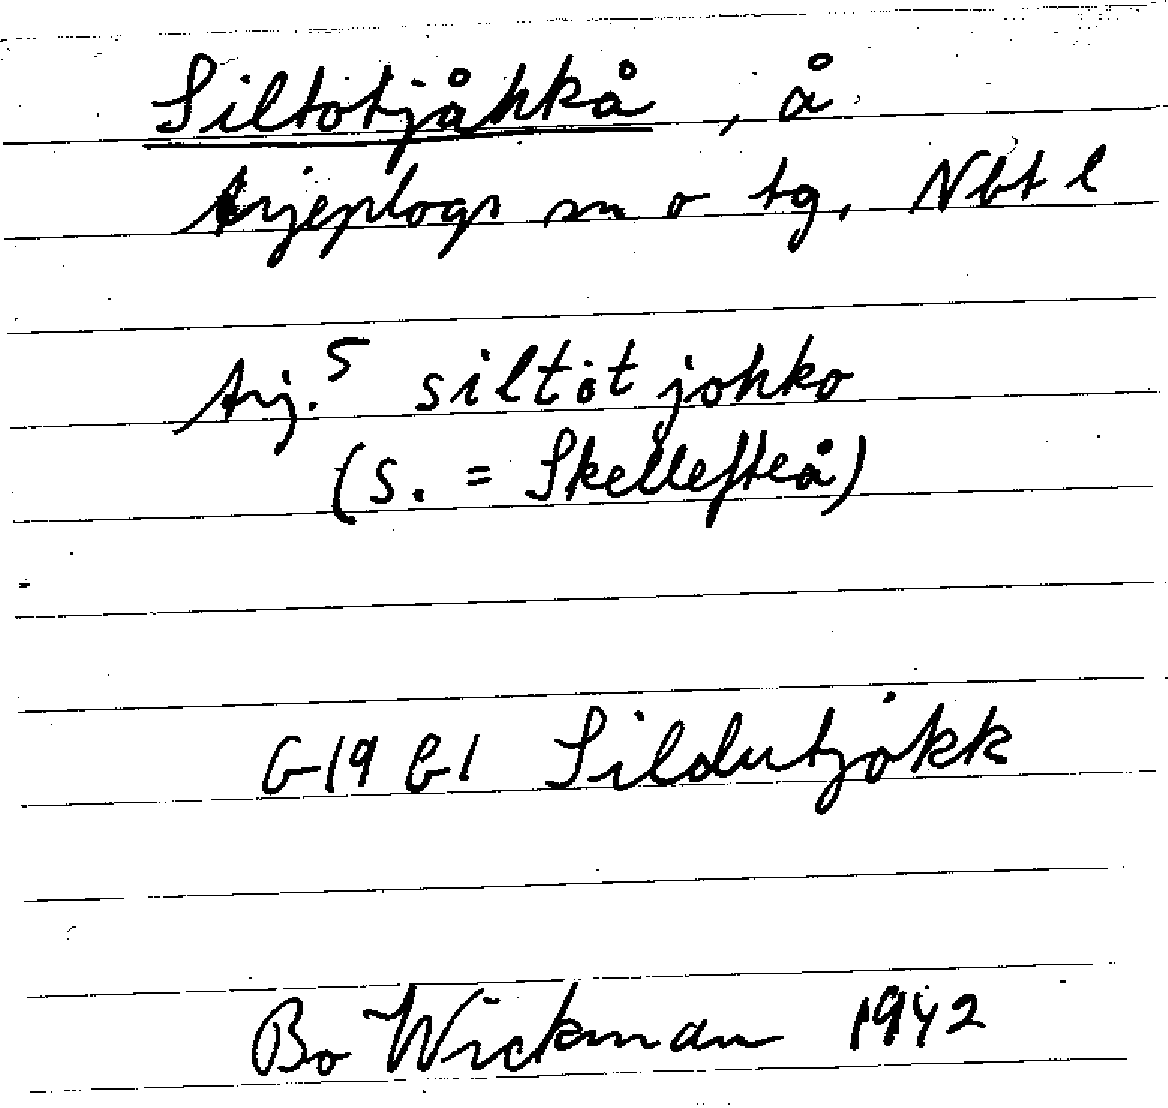 Siltotjåhkå, å
Arjeplogs sn o tg, Nbt l
Arj. S siltọt johko
(S. = Skellefteå)
G19 G1 Sildutjåkk
Bo Wickman 1942